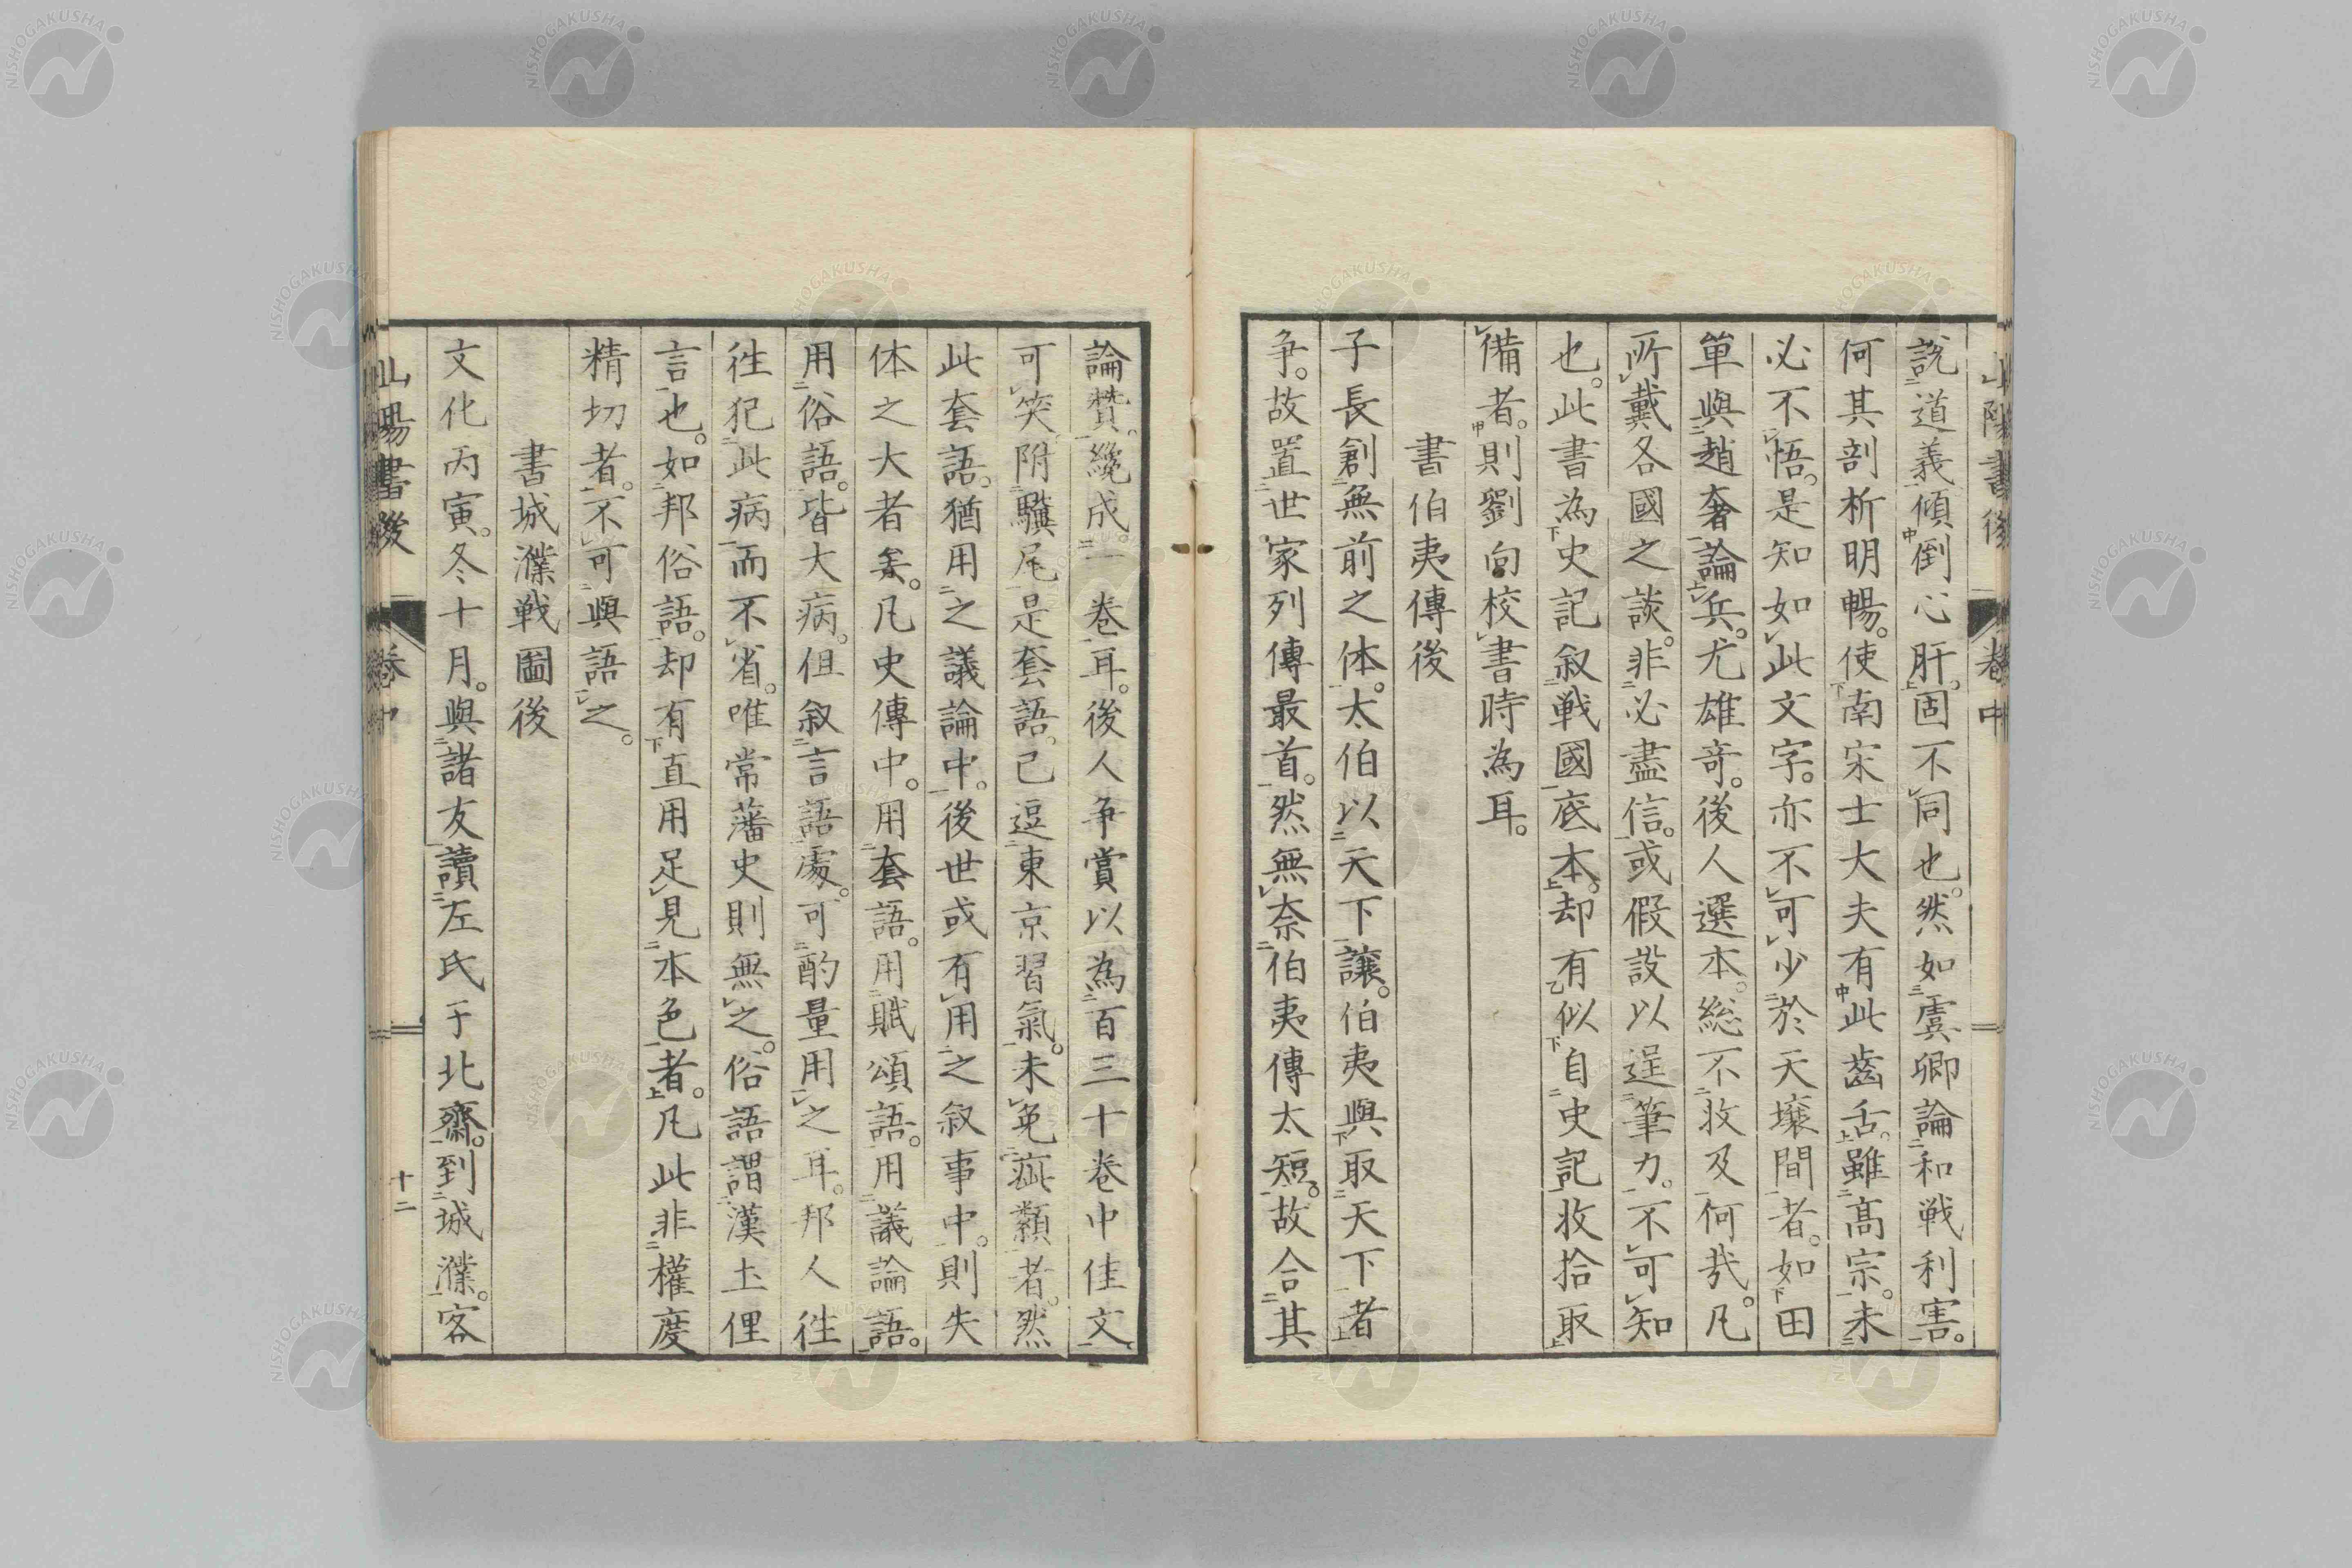 山陽書後 卷中
說道義傾倒心肝。固不同也。然如虞卿論和戦利害。
何其剖析明暢。使南宋士大夫有此齒舌。雖高宗。未
必不悟。是知如此文字。亦不可少於天壌間者。如田
單與趙奢論兵。尤雄奇。後人選本。総不收及何哉。凡
所戴各國之談。非必盡信。或假設以逞筆力。不可知
也。此書為史記叙戦國底本。却有似自史記收拾取
備者。則劉向校書時為耳。
書伯夷傳後
子長創無前之体。太伯以天下譲。伯夷與取天下者
争。故置世家列傳最首。然無奈伯夷傳太短。故合其
論賛。纔成一巻耳。後人争賞以為百三十巻中佳文
可笑附驥尾是套語。已逗東京習氣。未免疵纇者。然
此套語。猶用之議論中。後世或有用之叙事中。則失
体之大者矣。凡史傳中。用套語。用賦頌語。用議論語。
用俗語。皆大病。但叙言語處。可酌量用之耳。邦人往
往犯此病而不省。唯常藩史則無之。俗語謂漢土俚
言也。如邦俗語。却有直用足見本色者。凡此非權度
精切者。不可與語之。
書城濮戦圖後
文化丙寅。冬十月。與諸友讀左氏于北齋。到城濮。客
山陽書後 卷中 十二
NISHOGAKUSHA